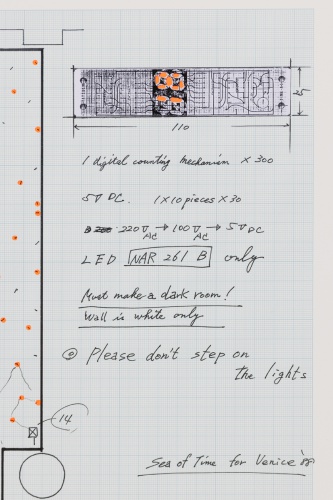 110
1 digital counting mechanism × 300
5V DC. 1×10 pieces × 30
220V AC → 100V AC → 5V DC
LED NAR 261 B only
Must make a dark room!
Wall is white only
◎ Please don't step on
the lights
14
Sea of Time for Venice '88